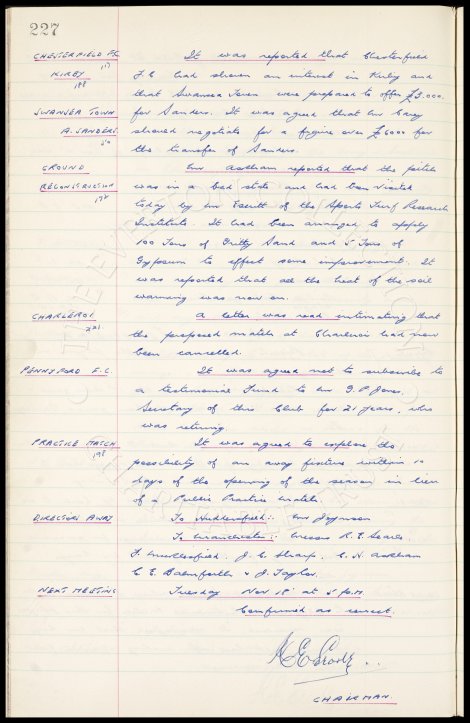 227
CHESTERFIELD F.C. It was reported that Chesterfield
KIRBY F.C had shown an interest in Kirby and
198 that Swansea Town were prepared to offer £3.000.
SWANSEA TOWN for Sanders. It was agreed that Mr Carey
A. SANDERS should negotiate for a figure over £6000 for
the transfer of Sanders.
GROUND Mr Askham reported that the pitch
RECONSTRUCTION was in a bad state and had been visited
today by Mr Escritt of the Sports Turf Research
Institute. It had been arranged to apply
100 Tons of Gritty Sand and 5 Tons of
Gypsum to effect some improvement. It
was reported that all the heat of the soil
warming was now on.
CHARLEROI A letter was read intimating that
221 the proposed match at Charleroi had now
been cancelled.
PENNYFORD F.C. It was agreed not to subscribe to
a testimonial Fund to Mr G. P. Jones,
Secretary of this Club for 21 years, who
was retiring.
PRACTICE MATCH It was agreed to explore the
198 possibility of an away fixture within 10
days of the opening of the season in lieu
of a Public Practice Match.
DIRECTORS AWAY To Huddersfield:- Mr Joynson
To Manchester:- Messrs R. E. Searle.
F. Micklesfield, J. C. Sharp, C. H. Askham
C. E. Balmforth & J. Taylor.
NEXT MEETING Tuesday Nov 18th at 5 p.m.
Confirmed as correct.
CHAIRMAN.